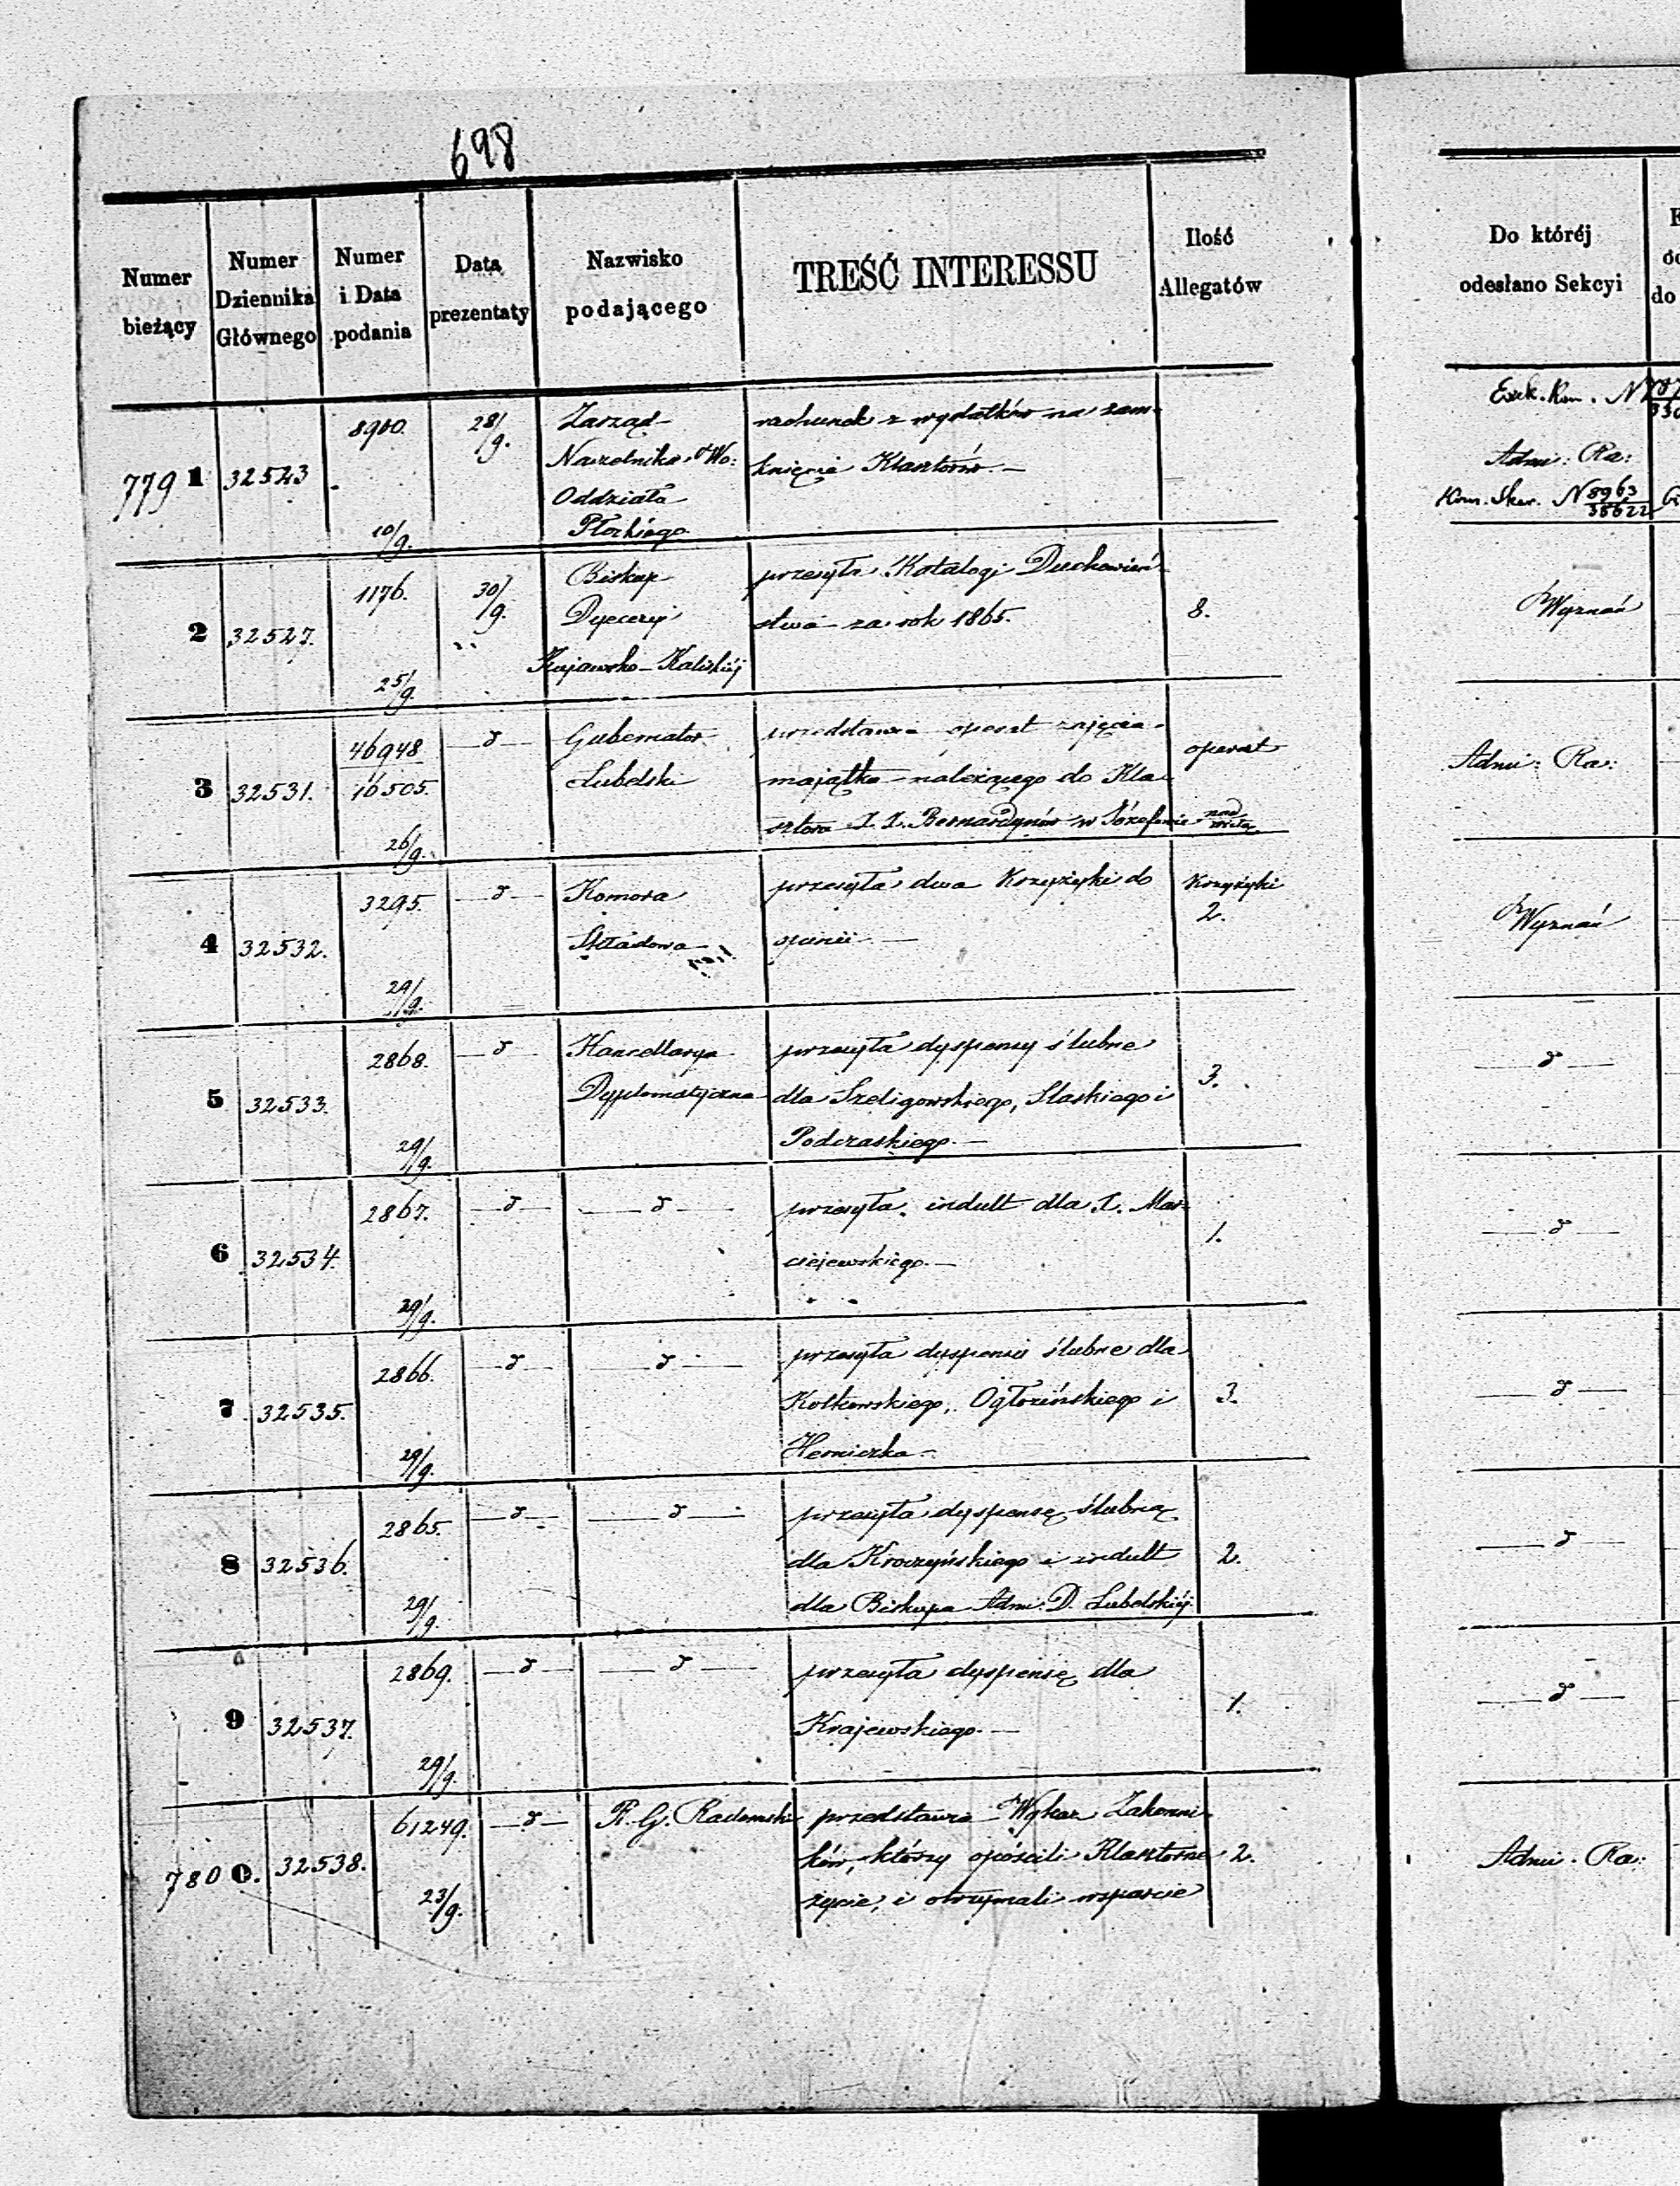 698
Numer bieżący
Numer Dziennika Głównego
Numer i Data podania
Data prezentaty
Nazwisko podającego
TREŚĆ INTERESSU
Ilość Allegatów
Do któréj odesłano Sekcyi
7791 32523 8900. 10/9. 28/9.
Zarząd
Naczelnika Wo:
Oddziała
Płockiego
rachunek z wydatków na zam-
knięcie Klasztorów.—
Adm: Ra:
N 8963
2 32527. 1176. 25/9. 30/9.
Biskup
Dyecezyi
Kujawsko-Kaliskiéj
przesyła Katalogi Duchowień-
stwa za rok 1865.
8.
Wyznań
3 32531. 46948 16505. 26/9. —d—
Gubernator
Lubelski
przedstawia operat zajęcia
majątku należącego do Kla-
sztoru X.X. Bernardynów w Józefowie nad
operat
Adm: Ra:
4 32532. 3295. 29/9. —d—
Komora
Składowa
przesyła dwa Krzyżyki do
opinii —
Krzyżyki
2.
Wyznań
5 32533. 2868. 29/9. —d—
Kancellarya
Dyplomatyczna
przesyła dyspensy ślubne
dla Szeligowskiego, Slaskiego i
Podczaskiego.—
3.
—d—
6 32534. 2867. 29/9. —d— —d—
przesyła indult dla X. Mac-
ciejewskiego.—
1.
—d—
7 32535. 2866. 29/9. —d— —d—
przesyła dyspensy ślubne dla
Kotkowskiego, Ogłozińskiego i
Herniczka.—
3.
—d—
8 32536. 2865. 29/9. —d— —d—
przesyła dyspensę ślubną
dla Kroczyńskiego i indult
dla Biskupa Adm. D. Lubelskiéj
2.
—d—
9 32537. 2869. 29/9. —d— —d—
przesyła dyspensę dla
Krajewskiego.—
1.
—d—
7800. 32538. 61249. 23/9. —d—
R. G. Radomski
przedstawia Wykaz Zakonni-
ków, którzy opóścili Klasztorne
życie, i otrzymali wsparcie
2.
Adm. Ra: